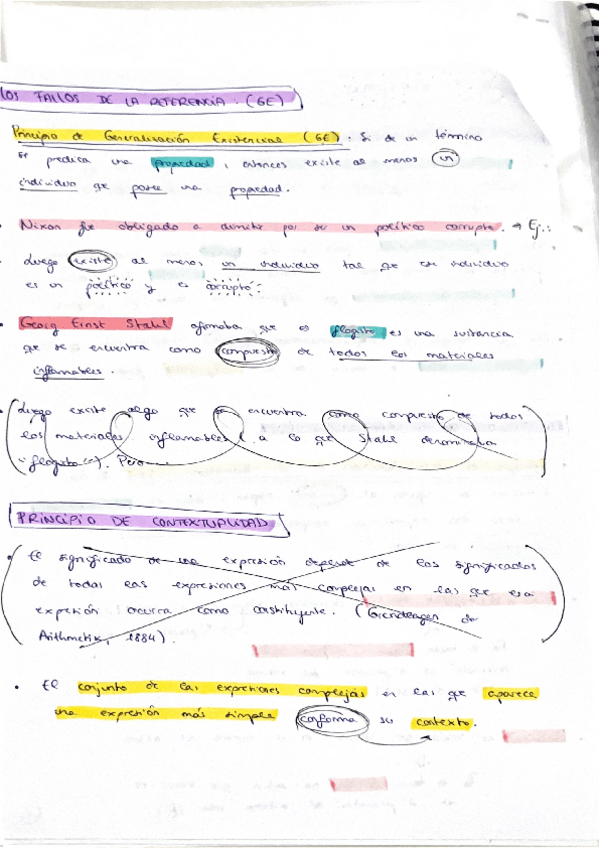 LOS FALLOS DE LA REFERENCIA. (GE)
Principio de Generalización Existencial (GE): Si de un término
se predica una propiedad, entonces existe al menos un
individuo que posee una propiedad.
Nixon fue obligado a dimitir por ser un político corrupto. → Ej.:
Luego existe al menos un individuo tal que ese individuo
es un político y es corrupto.
Georg Ernst Stahl afirmaba que el flogisto es una sustancia
que se encuentra como compuesto de todos los materiales
inflamables.
Luego existe algo que se encuentra como compuesto de todos
los materiales inflamables ( a lo que Stahl denominaba
"flogisto"). Pero
PRINCIPIO DE CONTEXTUALIDAD
El significado de una expresión depende de los significados
de todas las expresiones más complejas en las que esa
expresión ocurra como constituyente. (
Arithmetik, 1884).
El conjunto de las expresiones complejas en las que aparece
una expresión más simple conforma su contexto.